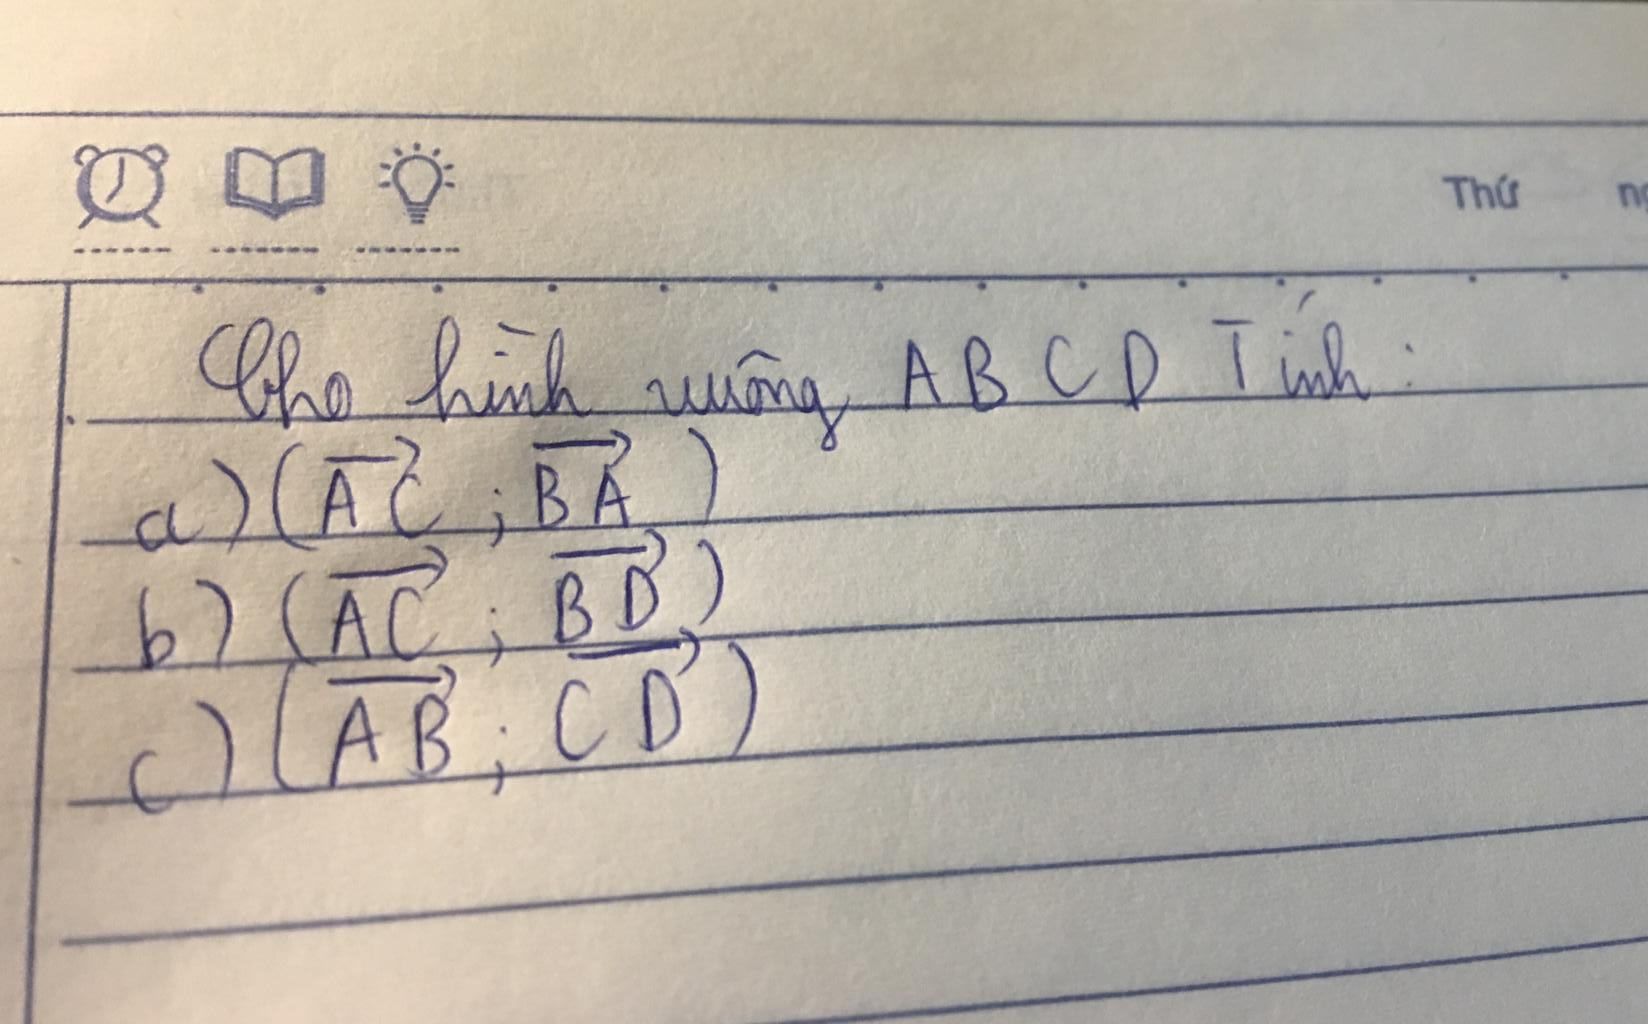 Thứ
Cho hình vuông ABCD Tính:
a) (\overrightarrow{AC}; \overrightarrow{BA})
b) (\overrightarrow{AC}; \overrightarrow{BD})
c) (\overrightarrow{AB}; \overrightarrow{CD})